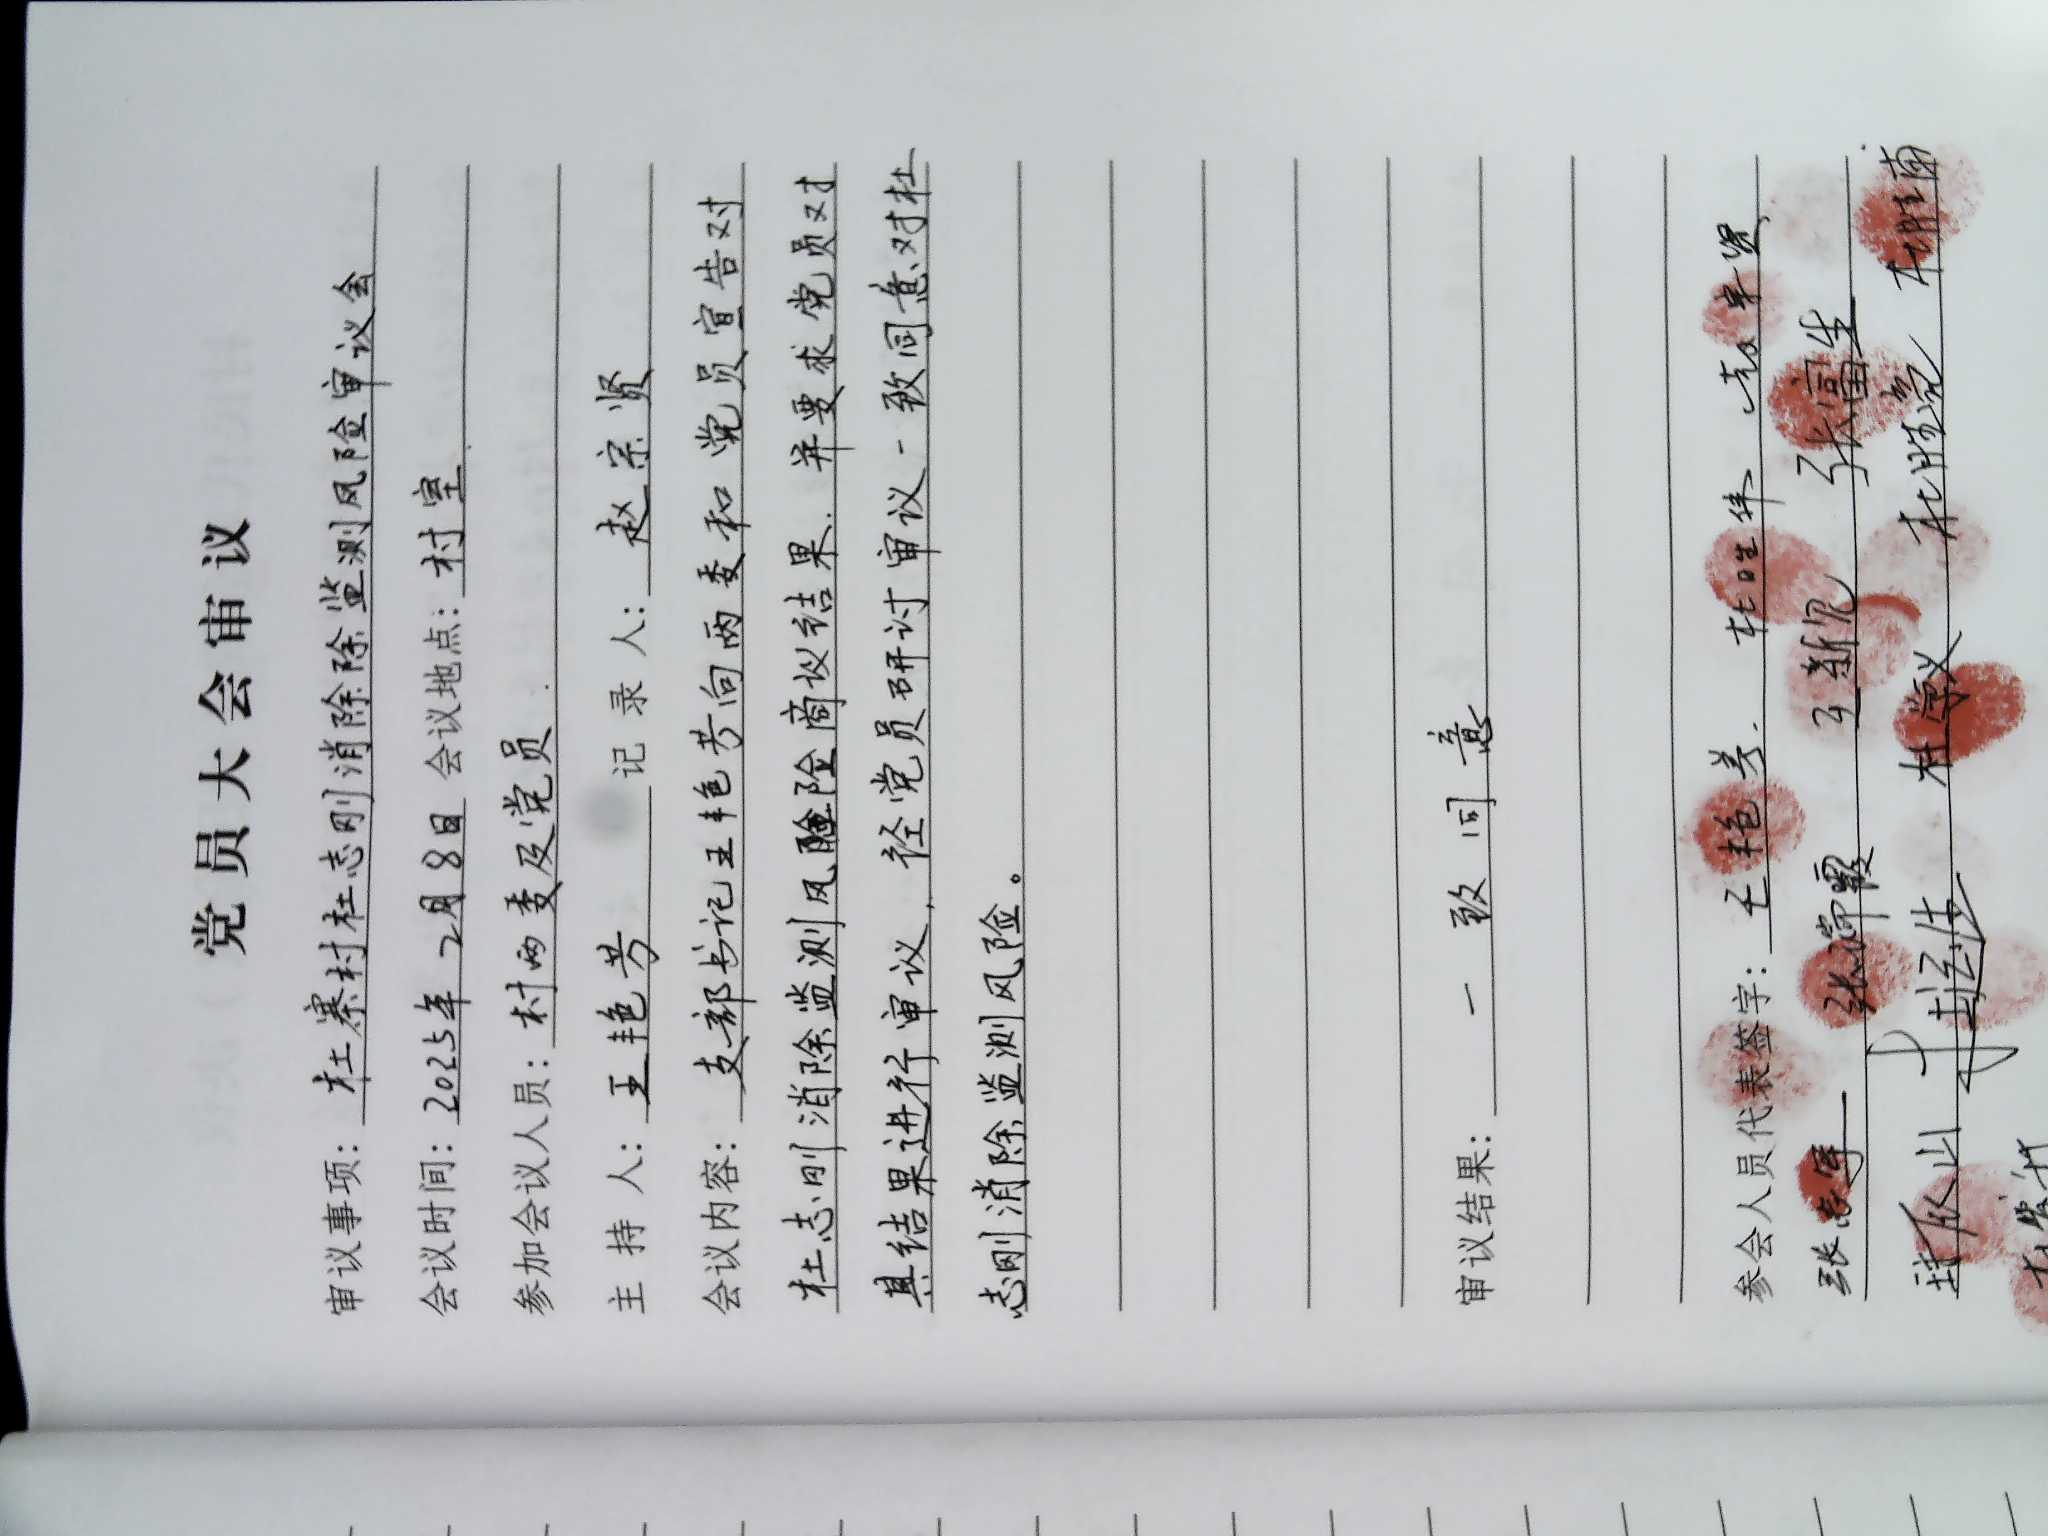 党员大会审议
审议事项：杜寨村杜志刚消除除监测风险审议会
会议时间：2025年2月8日 会议地点：村室
参加会议人员：村两委及党员
主 持 人：王艳芳 记 录 人：赵宗贤
会议内容：支部书记王艳芳向两委和党员宣告对
杜志刚消除监测风险商议结果.并要求党员对
其结果进行审议，经党员研讨审议一致同意对杜
志刚消除监测风险。
审议结果：一致同意
参会人员代表签字：王艳芳
张富生
杜学义